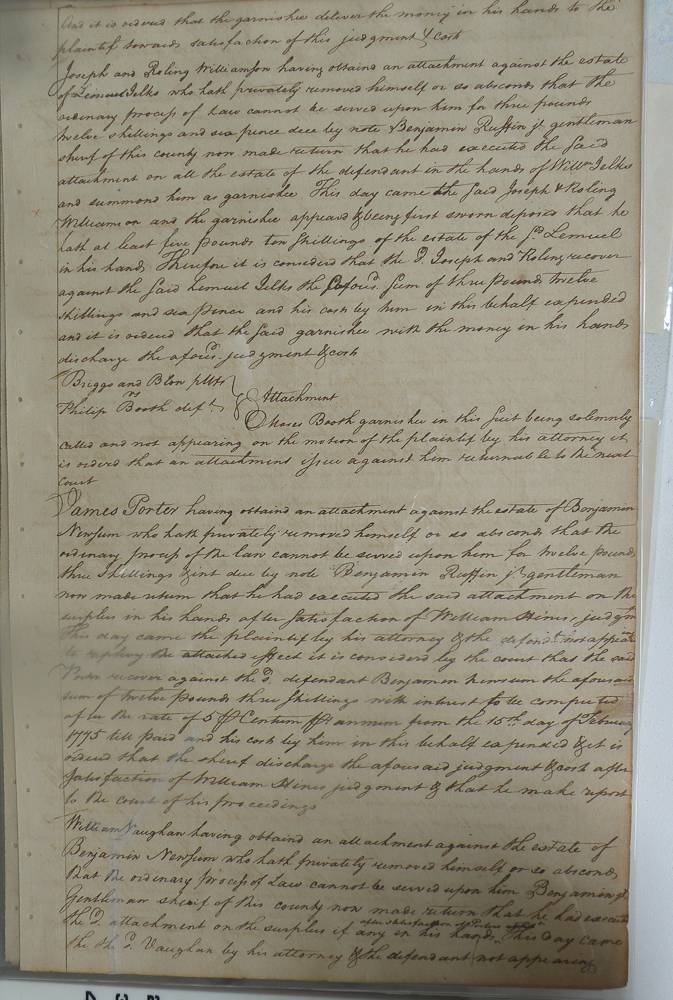 And it is ordered that the garnishee deliver the money in his hands to the
plaintif towards satisfaction of this judgment & costs
Joseph and Roling Williamson having obtaind an attachment against the estate
of Lemuel Jelks who hath privately removed himself or so absconds that the
ordinary process of Law cannot be served upon him for three pounds
twelve shillings and six pence due by note & Benjamin Ruffin jr gentleman
sherif of this county now made return that he had executed the said
attachment on all the estate of the defendant in the hands of Willm Jelks
and summond him as garnishee This day came the said Joseph & Roling
Williamson and the garnishee appeard & being first sworn deposed that he
hath at least five pounds ten shillings of the estate of the sd Lemuel
in his hands Therefore it is considerd that the sd. Joseph and Roling recover
against the said Lemuel Jelks the aforesd. sum of three pounds twelve
shillings and six pence and his costs by him in this behalf expended
and it is ordered that the said garnishee with the money in his hands
discharge the aforesd. judgment & costs
Briggs and Blow pltfs
Philip Booth deft. } Attachment
Moses Booth garnishee in this suit being solemnly
called and not appearing on the motion of the plaintif by his attorney it
is orderd that an attachment issue against him returnable to the next
Court
James Porter having obtaind an attachment against the estate of Benjamin
Newsum who hath privately removed himself or so absconds that the
ordinary process of the law cannot be served upon him for twelve pounds
three shillings & int due by note Benjamin Ruffin jr. gentleman
now made return that he had executed the said attachment on the
surplus in his hands after satisfaction of William Hines, judgm
This day came the plaintif by his attorney & the defendt. not appear
to replevy the attached effect it is considerd by the court that the said
recover against the sd. defendant Benjamin Newsum the aforesaid
sum of twelve pounds three shillings with intrest to be computed
after the rate of 5 P Centum P annum from the 15th day of February
1775 till paid and his costs by him in this behalf expended & it is
orderd that the sherif discharge the aforesaid judgment & costs after
satisfaction of William Hines judgment & that he make report
to the court of his proceedings
William Vaughan having obtaind an attachment against the estate of
Benjamin Newsum who hath privately removed himself or so absconds
that the ordinary process of Law cannot be served upon him Benjamin jr.
Gentleman sherif of this county now made return that he had executed
the sd. attachment on the surplus if any in his hands after satisfaction of This day came
the the sd. Vaughan by his attorney & the defendant not appearing